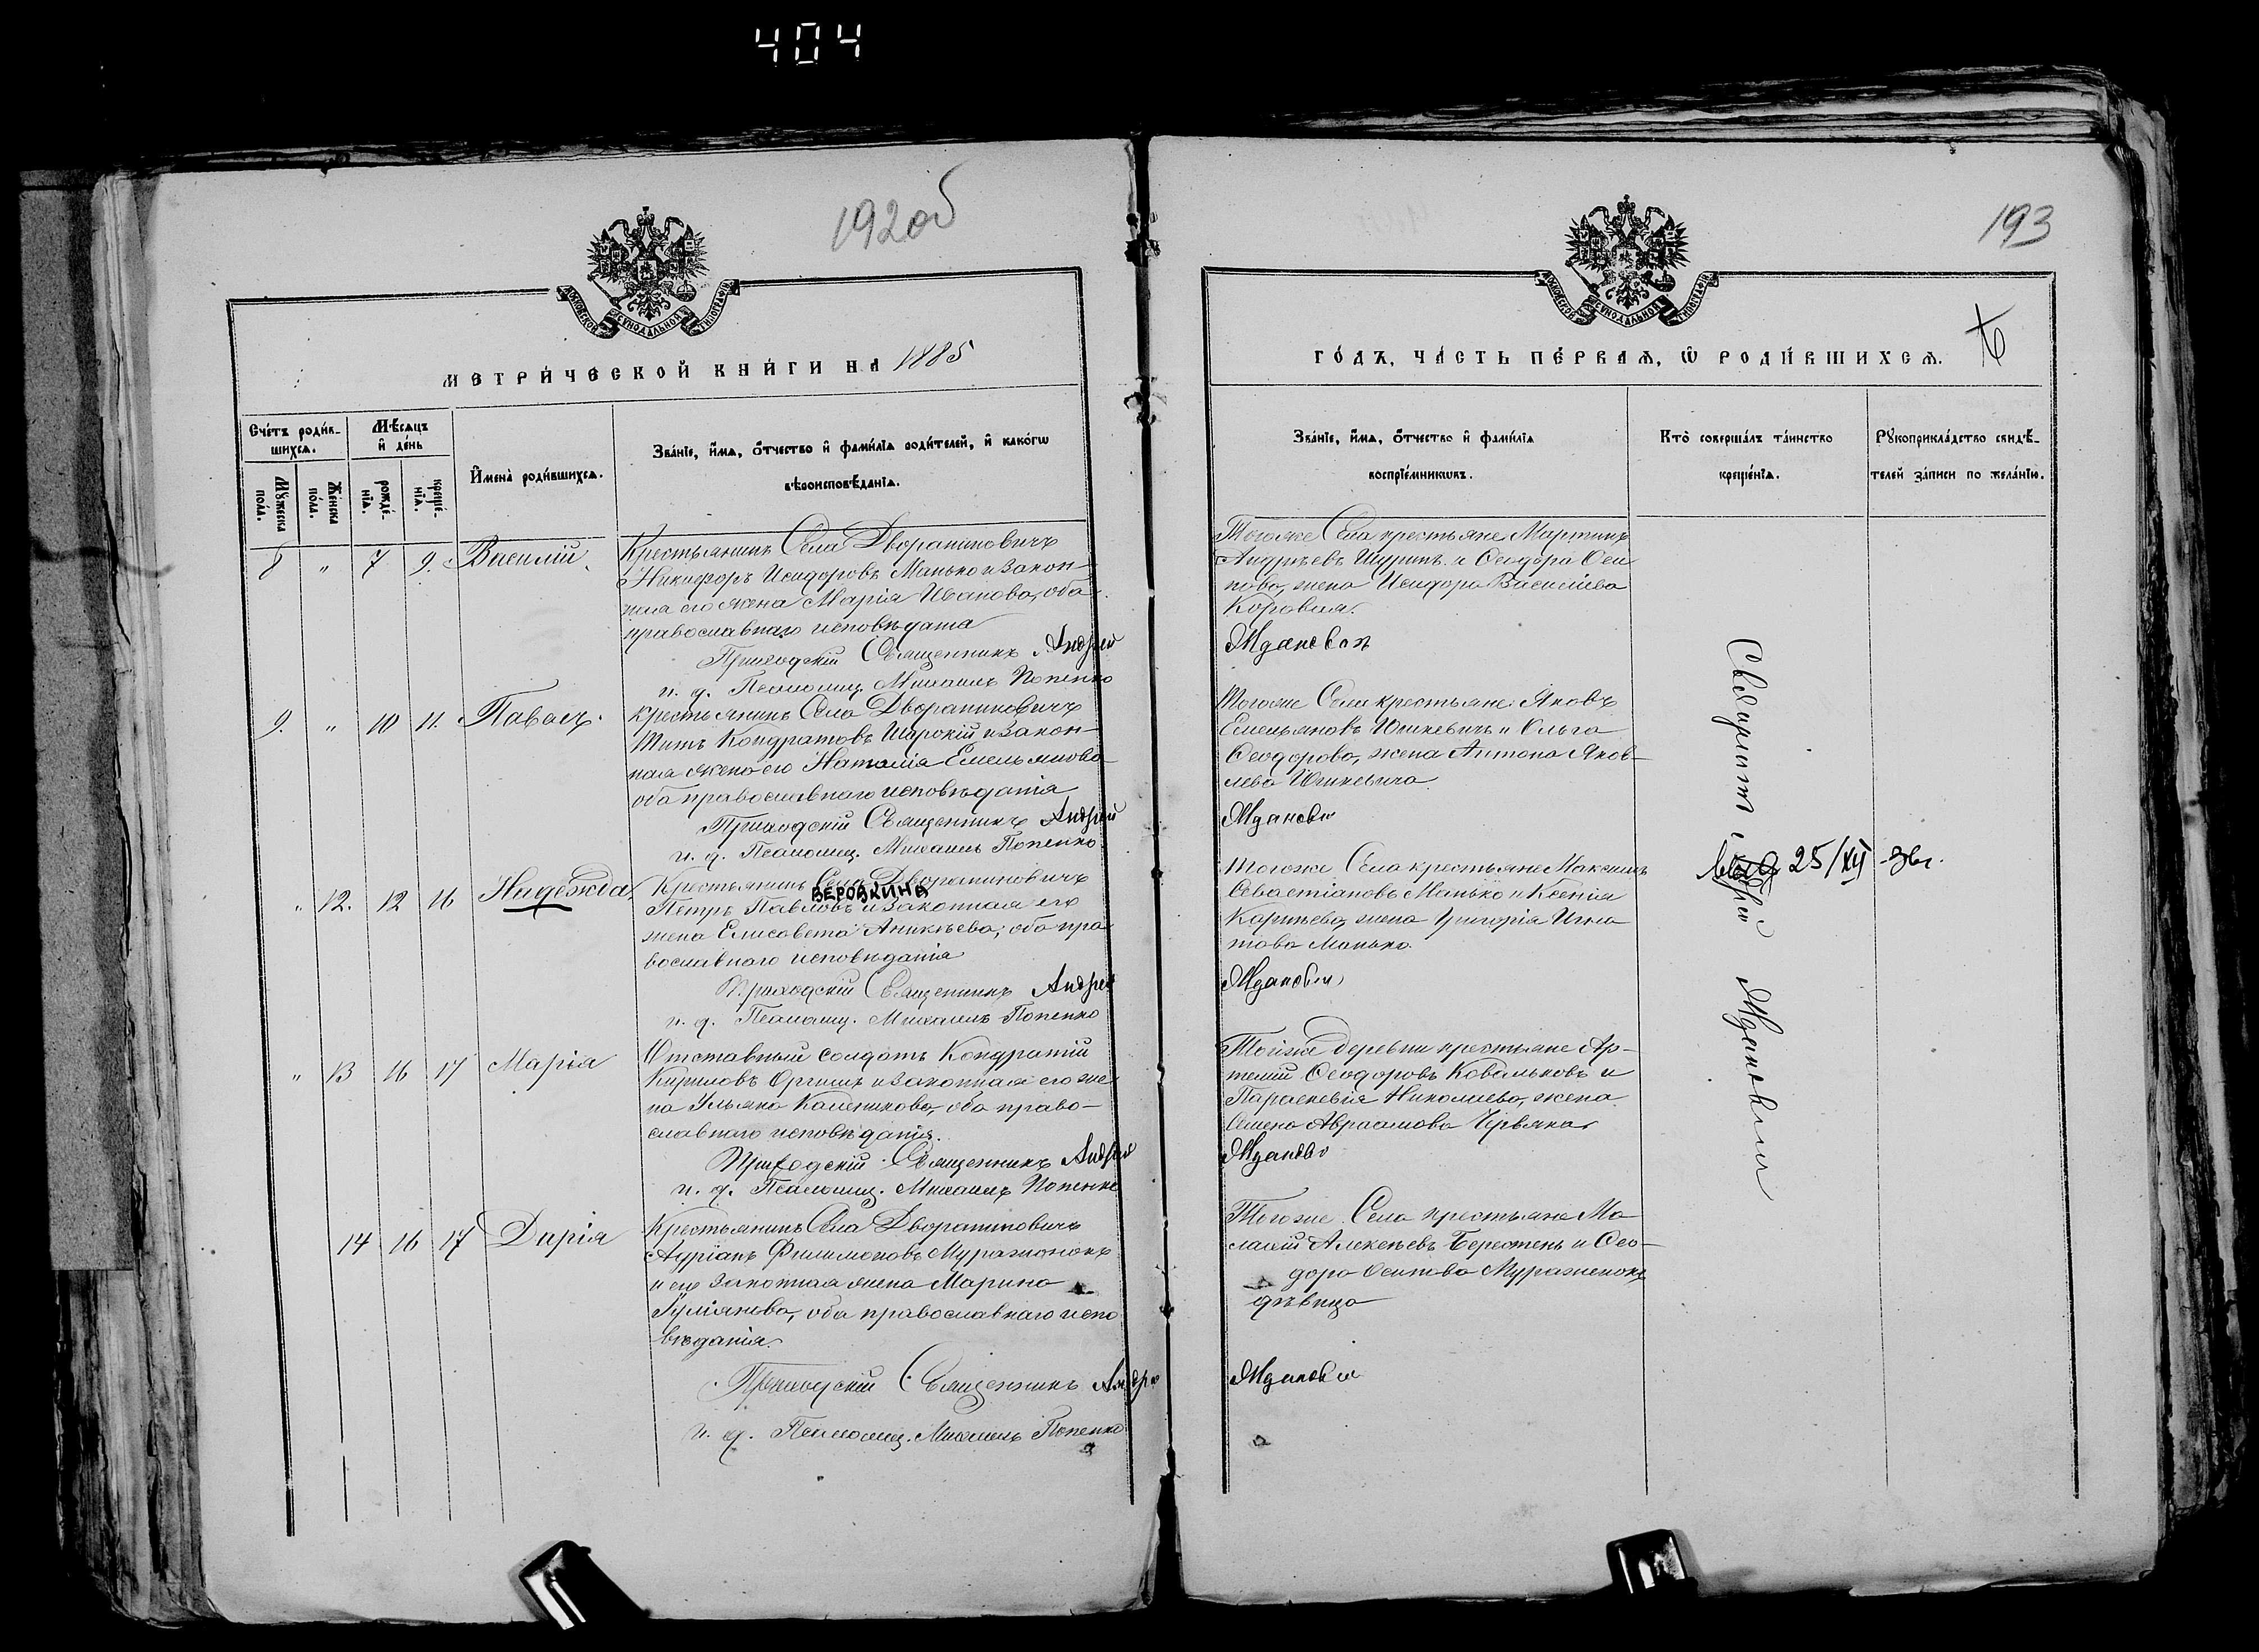 404
192об
193
МОСКОВСКОЙ СѴНОДАЛЬНОЙ ТИПОГРАФІИ
МОСКОВСКОЙ СѴНОДАЛЬНОЙ ТИПОГРАФІИ
МЕТРИ́ЧЕСКОЙ КНИ́ГИ НА 1885
ГО́ДЪ, ЧА́СТЬ ПЕ́РВАѦ, Ѽ РОДИ́ВШИХСѦ.
Сче́тъ роди́в-
шихсѧ.
Мѣ́сѧцъ
и҆ де́нь
Мꙋ́жеска
по́ла.
Же́нска
по́ла.
рожде́-
нїѧ.
креще́-
нїѧ.
И҆мена̀ роди́вшихсѧ.
Зва́нїе, и҆́мѧ, ѻ҆́тчество и҆ фами́лїѧ роди́телей, и҆ како́гѡ
вѣроисповѣ́данїѧ.
Зва́нїе, и҆́мѧ, ѻ҆́тчество и҆ фами́лїѧ
воспрїе́мникѡвъ.
Кто̀ соверша́лъ та́инство
креще́нїѧ.
Рꙋкоприкла́дство свидѣ́-
телей за́писи по жела́нїю.
8 " 7 9. Василій.
Крестьянинъ Села Дворатиновичъ
Никифоръ Исидоровъ Манько и закон-
ная его жена Марія Иванова, оба
православнаго исповѣданія
Приходскій Священникъ Андрей
и. д. Псаломщ. Михаилъ Попенко
Тогоже Села крестьяне Мартинъ
Андреевъ и Феодора Оси
пова, жена Исидора Василіева
Ждановичъ
9. " 10 11. Павелъ.
Крестьянинъ Села Дворатиновичъ
Титъ Кондратовъ Широкій и закон-
ная жена его Наталія Емельянова
оба православнаго исповѣданія
Приходскій Священникъ Андрей
и. д. Псаломщ. Михаилъ Попенко
Тогоже Села крестьяне Яковъ
Емельяновъ Юшкевичъ и Ольга
Феодорова, жена Антона Яков-
лева Юшкевича.
Ждановичъ
" 12. 12 16 Надежда,
Крестьянинъ Села Дворатиновичъ
ВЕРОВКИНА
Петръ Павловъ и законная его
жена Елисавета Аникѣева, оба пра
вославнаго исповѣданія
Приходскій Священникъ Андрей
и. д. Псаломщ. Михаилъ Попенко
Тогоже Села крестьяне Максимъ
Севастіановъ Манько и Ксенія
жена Григорія Игна
това Манько.
Ждановичъ
" 13 16 17 Марія
Отставный солдатъ Кондратій
Кириловъ и законная его же
на Ульяна Калиникова, оба право-
славнаго исповѣданія.
Приходскій Священникъ Андрей
и. д. Псаломщ. Михаилъ Попенко
Тойже деревни крестьяне Ар-
темій Феодоровъ Ковальковъ и
Параскевія Николаева, жена
Семена Авраамова Червяка
Ждановичъ
14 16 17 Дарія
Крестьянинъ Села Дворатиновичъ
Адріанъ Филимоновъ Муражонокъ
и его законная жена Марина
оба православнаго испо
вѣданія.
Приходскій Священникъ Андрей
и. д. Псаломщ. Михаилъ Попенко
Тогоже Села крестьяне Ма
лахій Алексѣевъ Берестень и Фео-
дора Осипова Муражонокъ
дѣвица
Ждановичъ
Священникъ Андрей Ждановичъ
25/XII -36г.